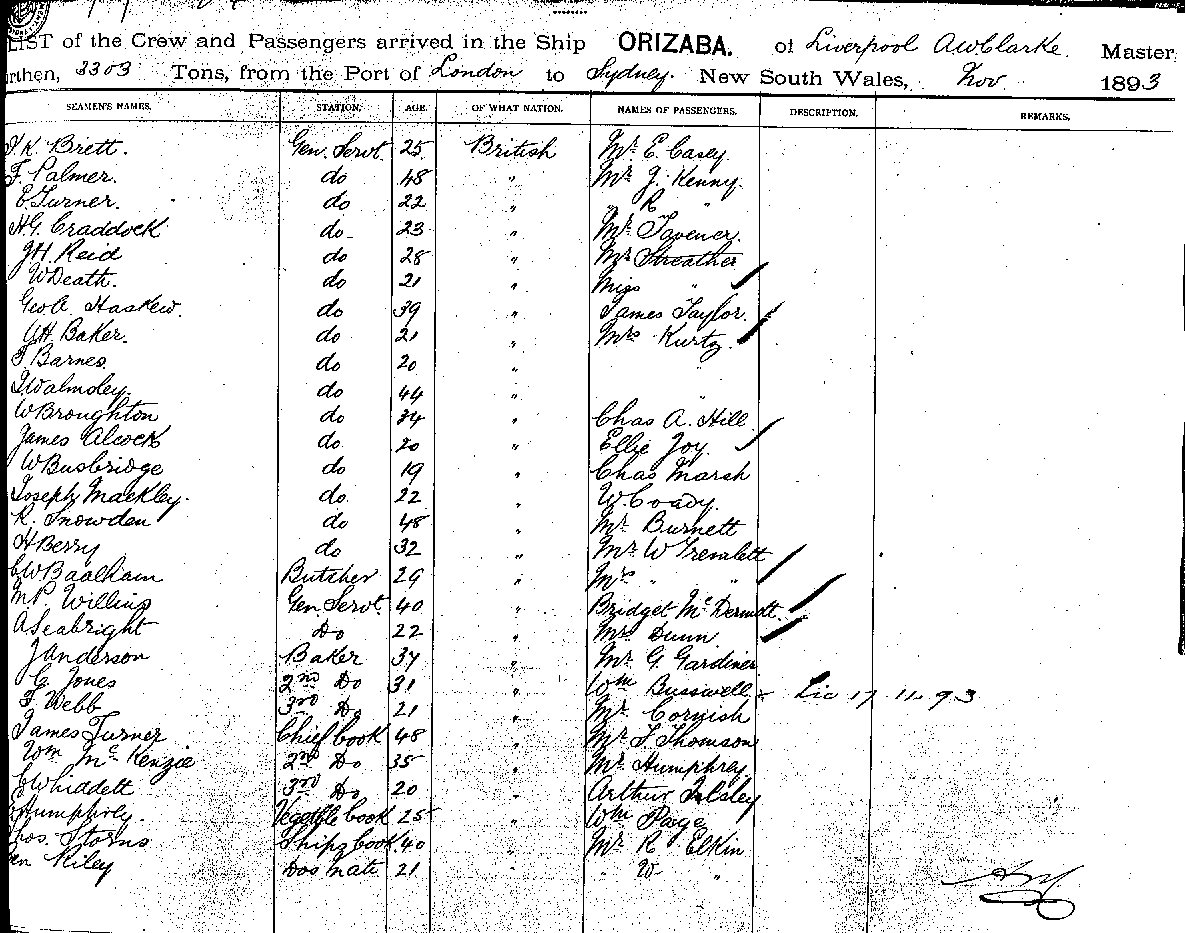 LIST of the Crew and Passengers arrived in the Ship ORIZABA. of Liverpool A W Clarke Master
rthen, 3303 Tons, from the Port of London to Sydney. New South Wales, Nov 1893
SEAMEN'S NAMES. STATION. AGE. OF WHAT NATION. NAMES OF PASSENGERS. DESCRIPTION. REMARKS.
K. Brett. Gen. Servt. 25 British Mr. E. Casey.
F Palmer. do 48 " Mr J. Kenny.
E Turner. do 22 " " R "
H.G. Craddock do 23 " Mr. Tavener.
J H. Reid do 28 " Mr Streather
W Death. do 21 " Miss "
Geo A. Haskew. do 39 " James Taylor.
G H. Baker. do 21 " Mrs Kurtz.
F Barnes. do 20 "
J. Walmsley. do 44 "
W Broughton do 34 " Chas A. Hill
James Alcock do 20 " Ellie Joy.
W Busbridge do 19 " Chas Marsh
Joseph Mackley. do 22 " W. Coady.
R. Snowden do 48 " Mr. Burnett
H Berry do 32 " Mr. W Tremlett
C W Baalham Butcher 29 " Mrs " "
M P. Willins Gen. Servt. 40 " Bridget McDermott.
A Seabright Do 22 " Mrs Dunn
J Anderson Baker 37 " Mr. G. Gardiner
C. Jones 2nd Do 31 " Wm Busswell 17 11 93
F Webb 3rd Do 21 " Mr. Cornish
James Turner Chief Cook 48 " Mr. T Thomson
Wm McKenzie 2nd Do 35 " Mr. Humphrey
C Whiddett 3rd Do 20 " Arthur Ilsley
Humphrey. Vegetable Cook 25 Wm Page
hos. Storns Ships Cook 40 Mr R Elkin
Riley Dos Mate 21 " W "